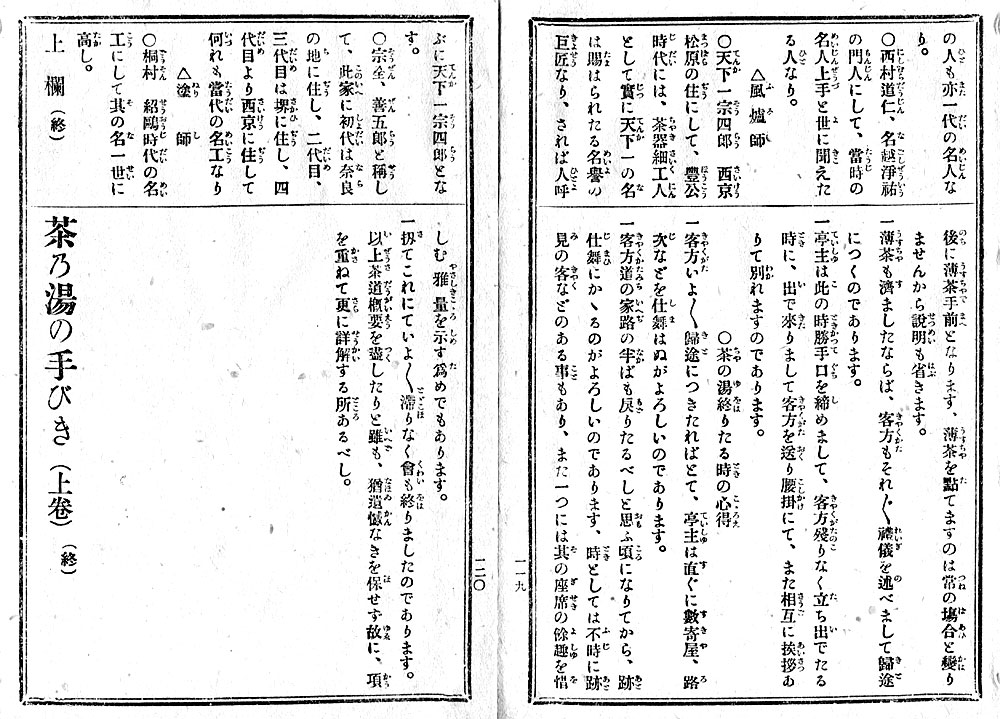 の人も亦一代の名人な
り。
○西村道仁、名越淨祐
の門人にして、當時の
名人上手と世に聞えた
る人なり。
△風爐師
○天下一宗四郎 西京
松原の住にして、豐公
時代には、茶器細工人
として實に天下一の名
は賜はられたる名譽の
巨匠なり、されば人呼
後に薄茶手前となります、薄茶を點てますのは常の塲合と變り
ませんから説明も省きます。
一薄茶も濟ましたならば、客方もそれ〳〵禮儀を述べまして歸途
につくのであります。
一亭主は此の時勝手口を締めまして、客方殘りなく立ち出でたる
時に、出で來りまして客方を送り腰掛にて、また相互に挨拶あ
りて別れますのであります。
○茶の湯終りたる時の心得
一客方いよ〳〵歸途につきたればとて、亭主は直ぐに數寄屋、路
次などを仕舞はぬがよろしいのであります。
一客方道の家路の半ばも戻りたるべしと思ふ頃になりてから、跡
仕舞にかゝるのがよろしいのであります、時としては不時に跡
見の客などのある事もあり、また一つには其の座席の餘趣を惜
一一九
ぶに天下一宗四郎とな
す。
○宗全、善五郎と稱し
て、此家に初代は奈良
の地に住し、二代目、
三代目は堺に住し、四
代目より西京に住して
何れも當代の名工なり
△塗師
○桐村 紹鷗時代の名
工にして其の名一世に
高し。
上欄（終）
しむ雅量を示す爲めでもあります。
一扨てこれにていよ〳〵滯りなく會も終りましたのであります。
以上茶道概要を盡したりと雖も、猶遺憾なきを保せず故に、項
を重ねて更に詳解する所あるべし。
茶乃湯の手びき（上卷）（終）
一二〇